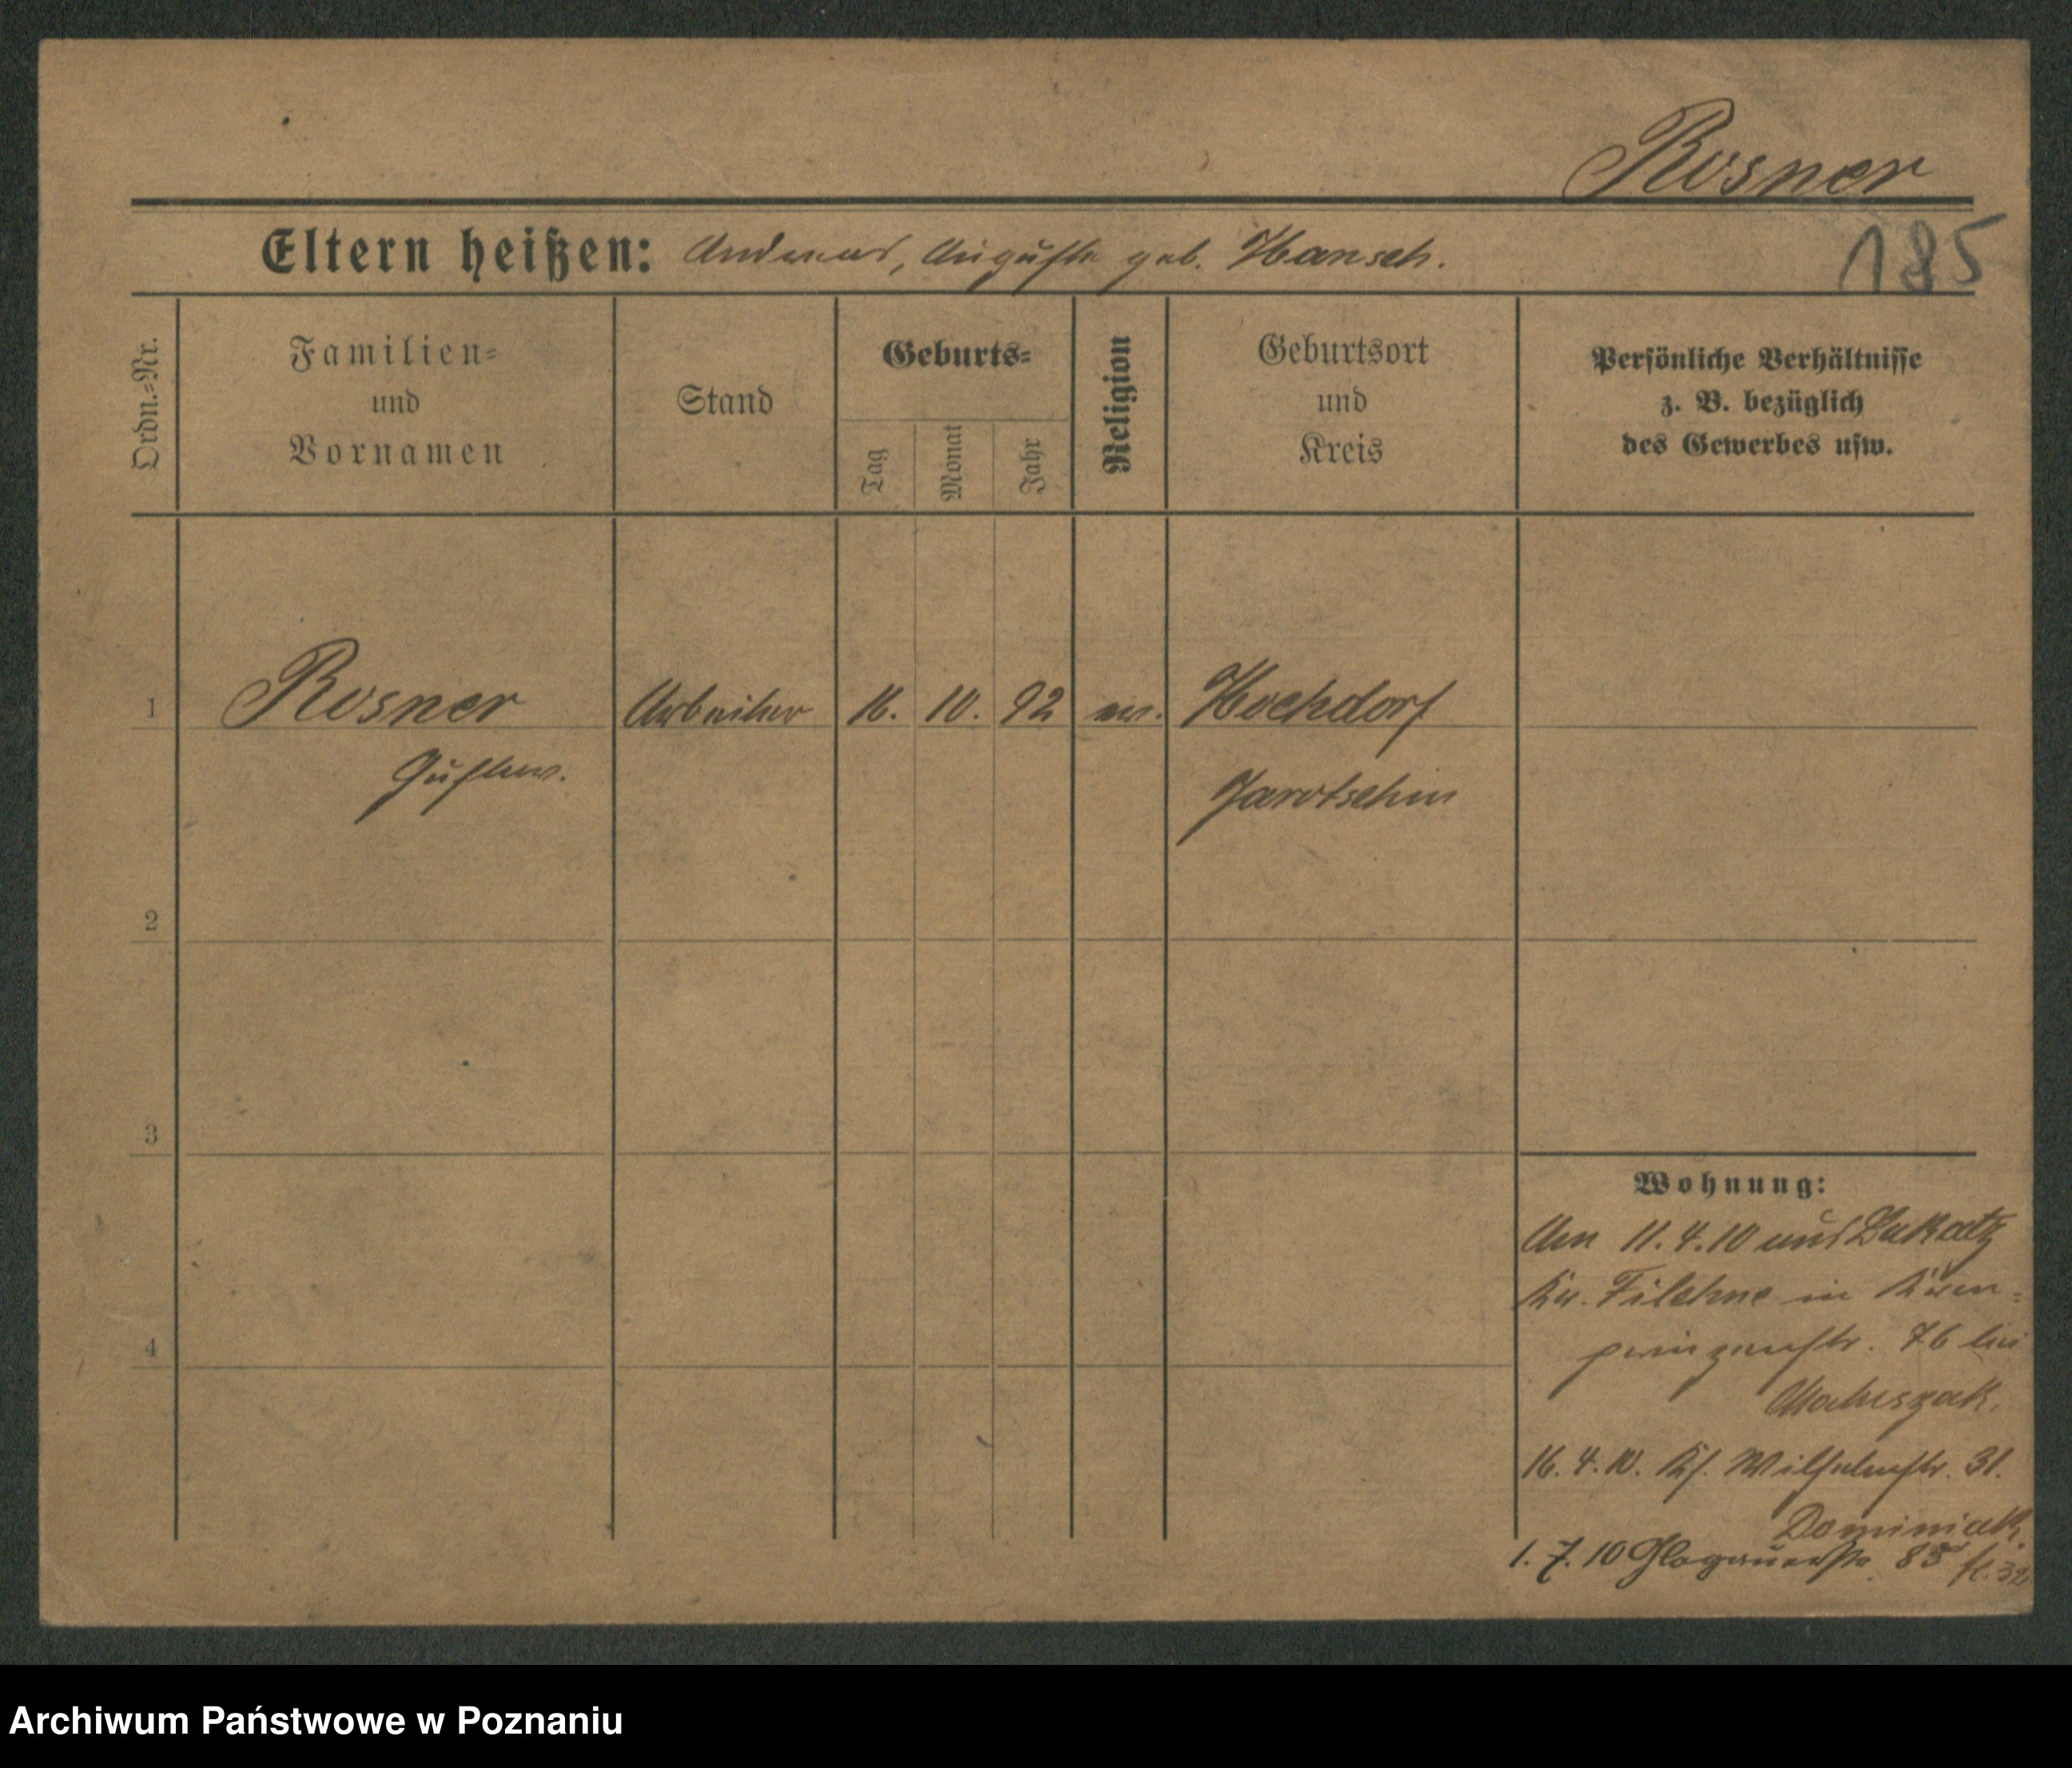 Rosner
185
Eltern heißen: Andreas, Auguste geb. Hansch.
Ordn.=Nr.
Familien=
und
Vornamen
Stand
Geburts=
Tag
Monat
Jahr
Religion
Geburtsort
und
Kreis
Persönliche Verhältnisse
z. B. bezüglich
des Gewerbes usw.
1 Rosner Arbeiter 16. 10. 92 ev. Hochdorf
Gustav. Jarotschin
2
3
4
Wohnung:
Am 11.4.10 aus
Kr. Filehne in Kron=
prinzenstr. 76 bei
Matuszak.
16.4.10. Ks. Wilhelmstr. 31.
Dominiak.
1.7.10 Glogauerstr. 85
Archiwum Państwowe w Poznaniu